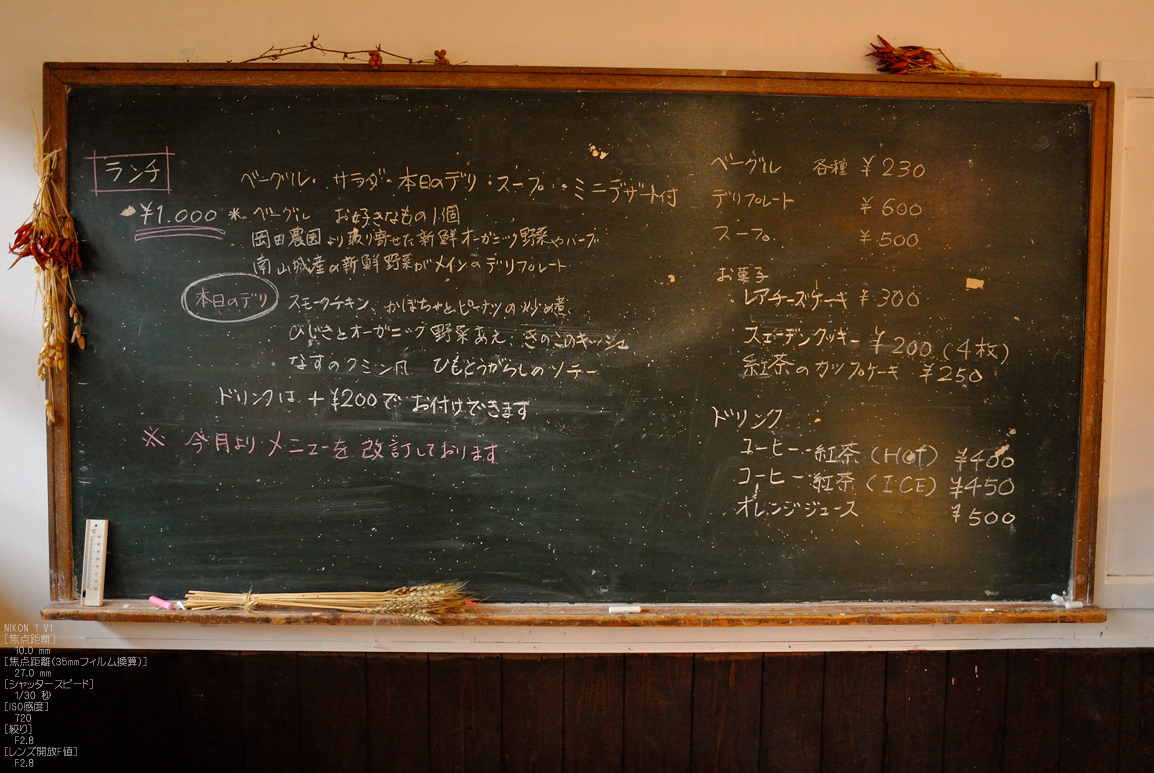 ランチ
ベーグル・サラダ・本日のデリ・スープ・ミニデザート付
¥1.000 ※ ベーグル お好きなもの1個
岡田農園より取り寄せた新鮮オーガニック野菜やハーブ
南山城産の新鮮野菜がメインのデリプレート
本日のデリ
スモークチキン、かぼちゃとピーナツの炒め煮
ひじきとオーガニック野菜あえ・きのこのキッシュ
なすのクミン風 ひもとうがらしのソテー
ドリンクは +¥200で お付けできます
※ 今月よりメニューを改訂しております
ベーグル 各種 ¥230
デリプレート ¥600
スープ ¥500
お菓子
レアチーズケーキ ¥300
スェーデンクッキー ¥200(4枚)
紅茶のカップケーキ ¥250
ドリンク
コーヒー・紅茶(Hot) ¥400
コーヒー・紅茶(ICE) ¥450
オレンジジュース ¥500
NIKON 1 V1
[焦点距離]
10.0 mm
[焦点距離(35mmフィルム換算)]
27.0 mm
[シャッタースピード]
1/30 秒
[ISO感度]
720
[絞り]
F2.8
[レンズ開放F値]
F2.8